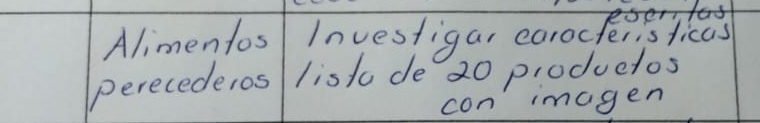 escritas
Alimentos Investigar caracteristicas
perecederos lista de 20 productos
con imagen